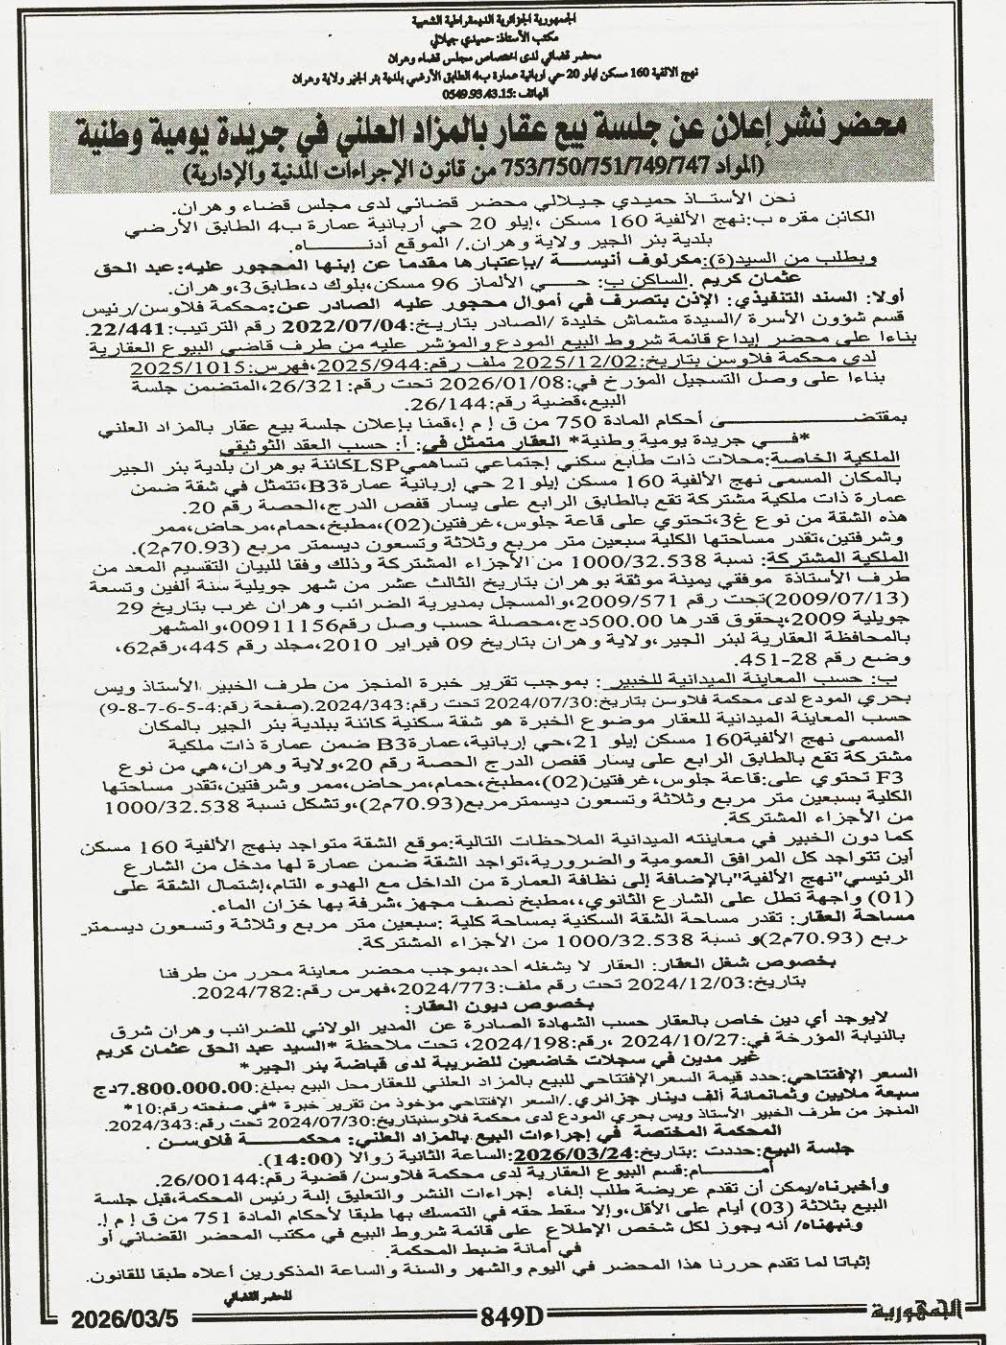 الجمهورية الجزائرية الديمقراطية الشعبية
مكتب الأستاذ: حميدي جيلالي
محضر قضائي لدى اختصاص مجلس قضاء وهران
نهج الالفية 160 مسكن ايلو 20 حي اربانية عمارة ب4 الطابق الأرضي بلدية بئر الجير ولاية وهران
الهاتف :0549.93.43.15
محضر نشر إعلان عن جلسة بيع عقار بالمزاد العلني في جريدة يومية وطنية
(المواد 753/750/751/749/747 من قانون الإجراءات المدنية والإدارية)
نحن الأستاذ حميدي جيلالي محضر قضائي لدى مجلس قضاء وهران.
الكائن مقره ب:نهج الألفية 160 مسكن ،إيلو 20 حي أربانية عمارة ب4 الطابق الأرضي
بلدية بئر الجير ولاية وهران./ الموقع أدنـــــــاه.
وبطلب من السيد(ة):مكرلوف أنيســـة /بإعتبارها مقدما عن إبنها المحجور عليه:عبد الحق
عثمان كريم .الساكن ب: حـــي الألماز 96 مسكن،بلوك د،طابق3،وهران.
أولا: السند التنفيذي: الإذن بتصرف في أموال محجور عليه الصادر عن:محكمة فلاوسن/رئيس
قسم شؤون الأسرة /السيدة مشماش خليدة /الصادر بتاريخ:2022/07/04 رقم الترتيب:22/441.
بناءا على محضر إيداع قائمة شروط البيع المودع والمؤشر عليه من طرف قاضي البيوع العقارية
لدى محكمة فلاوسن بتاريخ:2025/12/02 ملف رقم:2025/944،فهرس:2025/1015
بناءا على وصل التسجيل المؤرخ في:2026/01/08 تحت رقم:26/321،المتضمن جلسة
البيع،قضية رقم:26/144.
بمقتضـــــــى أحكام المادة 750 من ق إ م إ،قمنا بإعلان جلسة بيع عقار بالمزاد العلني
*فـــي جريدة يومية وطنية* العقار متمثل في: أ: حسب العقد التوثيقي
الملكية الخاصة:محلات ذات طابع سكني إجتماعي تساهميLSPكائنة بوهران بلدية بئر الجير
بالمكان المسمى نهج الألفية 160 مسكن إيلو21 حي إربانية عمارةB3،تتمثل في شقة ضمن
عمارة ذات ملكية مشتركة تقع بالطابق الرابع على يسار قفص الدرج،الحصة رقم 20.
هذه الشقة من نوع غ3،تحتوي على قاعة جلوس،غرفتين(02)،مطبخ،حمام،مرحاض،ممر
وشرفتين،تقدر مساحتها الكلية سبعين متر مربع وثلاثة وتسعون ديسمتر مربع (70.93م2).
الملكية المشتركة: نسبة 1000/32.538 من الأجزاء المشتركة وذلك وفقا للبيان التقسيم المعد من
طرف الأستاذة موفقي يمينة موثقة بوهران بتاريخ الثالث عشر من شهر جويلية سنة ألفين وتسعة
(2009/07/13)تحت رقم 2009/571،والمسجل بمديرية الضرائب وهران غرب بتاريخ 29
جويلية 2009،بحقوق قدرها 500.00دج،محصلة حسب وصل رقم00911156،والمشهر
بالمحافظة العقارية لبئر الجير،ولاية وهران بتاريخ 09 فبراير 2010،مجلد رقم 445،رقم62،
وضع رقم 28-451.
ب: حسب المعاينة الميدانية للخبير : بموجب تقرير خبرة المنجز من طرف الخبير الأستاذ ويس
بحري المودع لدى محكمة فلاوسن بتاريخ:2024/07/30 تحت رقم:2024/343.(صفحة رقم:4-5-6-7-8-9)
حسب المعاينة الميدانية للعقار موضوع الخبرة هو شقة سكنية كائنة ببلدية بئر الجير بالمكان
المسمى نهج الألفية160 مسكن إيلو 21،حي إربانية،عمارةB3 ضمن عمارة ذات ملكية
مشتركة تقع بالطابق الرابع على يسار قفص الدرج الحصة رقم 20،ولاية وهران،هي من نوع
F3 تحتوي على:قاعة جلوس،غرفتين(02)،مطبخ،حمام،مرحاض،ممر وشرفتين،تقدر مساحتها
الكلية بسبعين متر مربع وثلاثة وتسعون ديسمترمربع(70.93م2)،وتشكل نسبة 1000/32.538
من الأجزاء المشتركة.
كما دون الخبير في معاينته الميدانية الملاحظات التالية:موقع الشقة متواجد بنهج الألفية 160 مسكن
أين تتواجد كل المرافق العمومية والضرورية،تواجد الشقة ضمن عمارة لها مدخل من الشارع
الرئيسي"نهج الألفية"بالإضافة إلى نظافة العمارة من الداخل مع الهدوء التام،إشتمال الشقة على
(01) واجهة تطل على الشارع الثانوي،،مطبخ نصف مجهز،شرفة بها خزان الماء.
مساحة العقار: تقدر مساحة الشقة السكنية بمساحة كلية :سبعين متر مربع وثلاثة وتسعون ديسمتر
ربع (70.93م2)و نسبة 1000/32.538 من الأجزاء المشتركة.
بخصوص شغل العقار: العقار لا يشغله أحد،بموجب محضر معاينة محرر من طرفنا
بتاريخ:2024/12/03 تحت رقم ملف:2024/773،فهرس رقم:2024/782.
بخصوص ديون العقار:
لايوجد أي دين خاص بالعقار حسب الشهادة الصادرة عن المدير الولائي للضرائب وهران شرق
بالنيابة المؤرخة في:2024/10/27 ،رقم:2024/198، تحت ملاحظة *السيد عبد الحق عثمان كريم
غير مدين في سجلات خاضعين للضريبة لدى قباضة بئر الجير*
السعر الإفتتاحي:حدد قيمة السعر الإفتتاحي للبيع بالمزاد العلني للعقار محل البيع بمبلغ:7.800.000.00دج
سبعة ملايين وثمانمائة ألف دينار جزائري./السعر الإفتتاحي مؤخوذ من تقرير خبرة *في صفحته رقم:10*
المنجز من طرف الخبير الأستاذ ويس بحري المودع لدى محكمة فلاوسنبتاريخ:2024/07/30 تحت رقم:2024/343.
المحكمة المختصة في إجراءات البيع بالمزاد العلني: محكمـــــة فلاوســن .
جلسة البيع:حددت :بتاريخ:2026/03/24:الساعة الثانية زوالا (14:00).
أمــــــام:قسم البيوع العقارية لدى محكمة فلاوسن/ قضية رقم:26/00144.
وأخبرناه/يمكن أن تقدم عريضة طلب إلغاء إجراءات النشر والتعليق إلى رئيس المحكمة،قبل جلسة
البيع بثلاثة (03) أيام على الأقل،وإلا سقط حقه في التمسك بها طبقا لأحكام المادة 751 من ق إ م إ.
ونبهناه/ أنه يجوز لكل شخص الإطلاع على قائمة شروط البيع في مكتب المحضر القضائي أو
في أمانة ضبط المحكمة.
إثباتا لما تقدم حررنا هذا المحضر في اليوم والشهر والسنة والساعة المذكورين أعلاه طبقا للقانون.
المحضر القضائي
الجمهورية 849D 2026/03/5